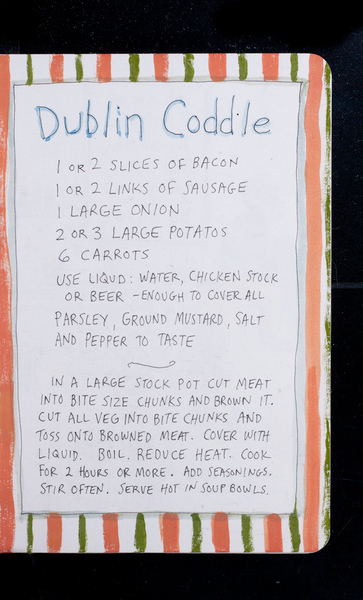 Dublin Coddle
1 OR 2 SLICES OF BACON
1 OR 2 LINKS OF SAUSAGE
1 LARGE ONION
2 OR 3 LARGE POTATOS
6 CARROTS
USE LIQUD: WATER, CHICKEN STOCK
OR BEER - ENOUGH TO COVER ALL
PARSLEY, GROUND MUSTARD, SALT
AND PEPPER TO TASTE
IN A LARGE STOCK POT CUT MEAT
INTO BITE SIZE CHUNKS AND BROWN IT.
CUT ALL VEG INTO BITE CHUNKS AND
TOSS ONTO BROWNED MEAT. COVER WITH
LIQUID. BOIL. REDUCE HEAT. COOK
FOR 2 HOURS OR MORE. ADD SEASONINGS.
STIR OFTEN. SERVE HOT IN SOUP BOWLS.